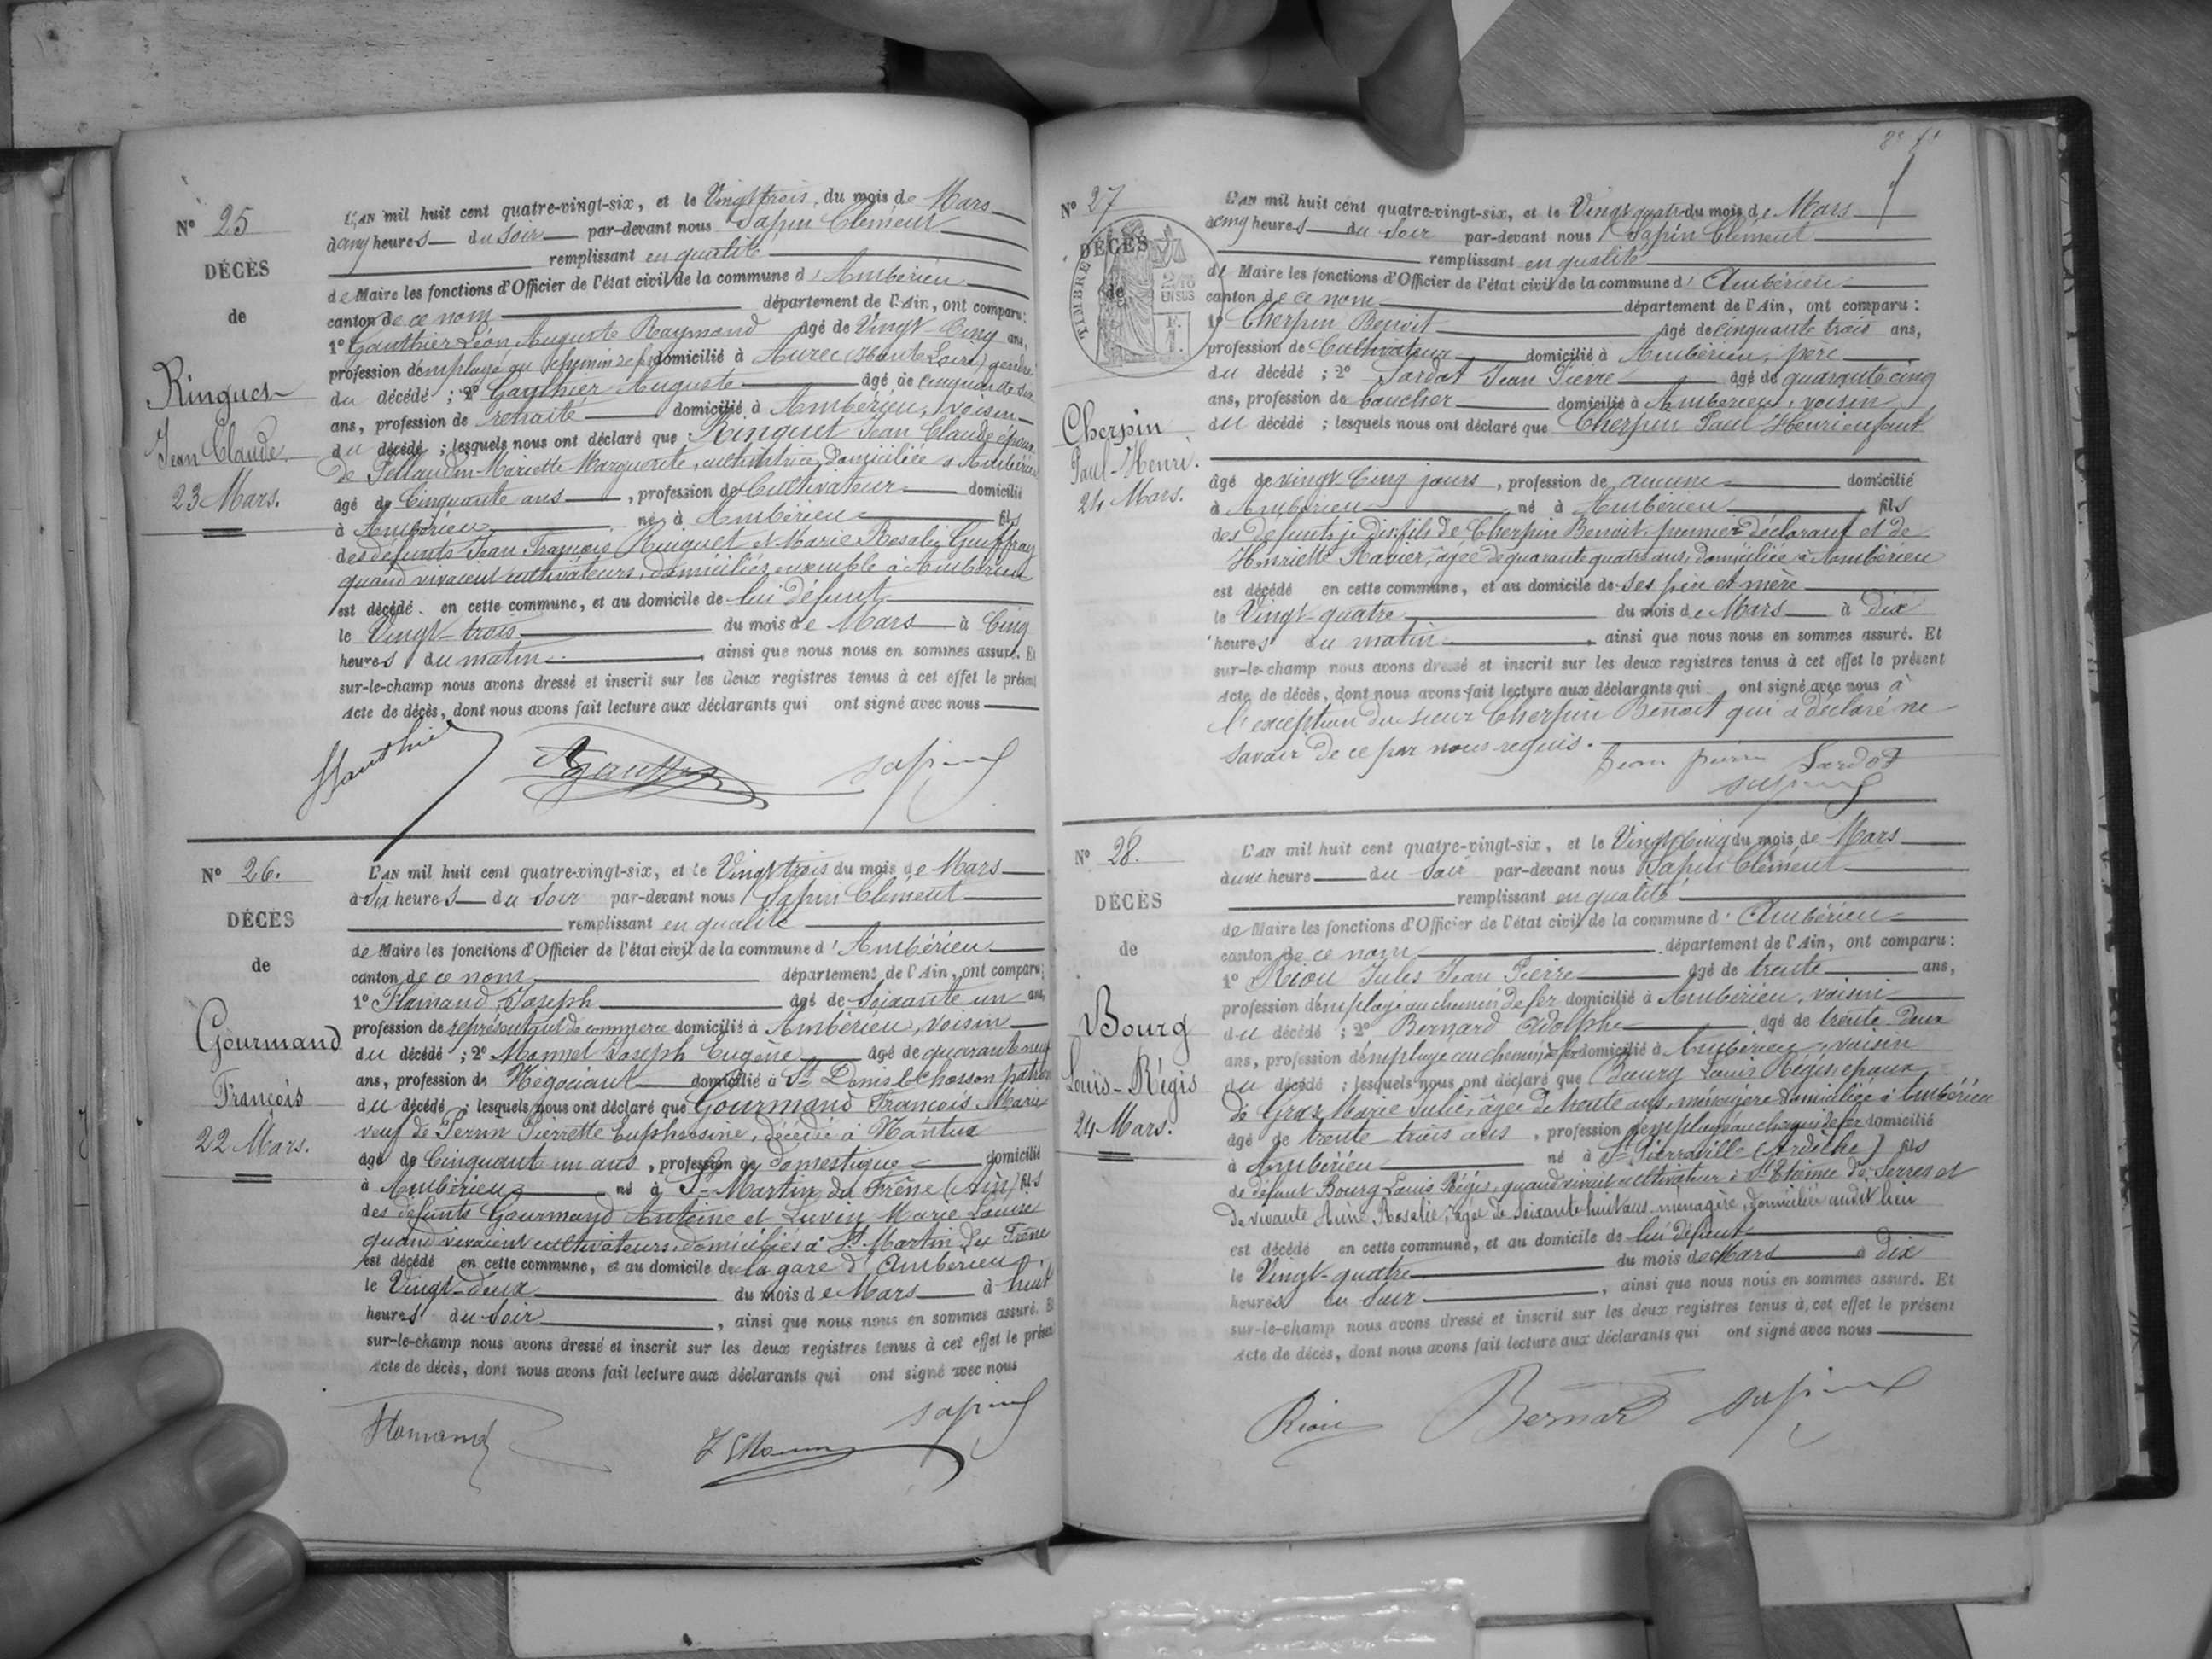 N° 25
DÉCÈS
de
Ringuet
Jean Claude.
23 Mars.
L'AN mil huit cent quatre-vingt-six, et le Vingt trois du mois de Mars
à cinq heures du Soir par-devant nous Sapin Clément
remplissant en qualité
de Maire les fonctions d'Officier de l'état civil de la commune d'Ambérieu
canton de ce nom département de l'Ain, ont comparu:
1° Gauthier Léon Auguste Raymond âgé de Vingt-Cinq ans,
profession d'employé au chemin de fer domicilié à Aurec (Haute Loire) gendre
du décédé ; 2° Gauthier Auguste âgé de cinquante six
ans, profession de retraité domicilié à Ambérieu, voisin
du décédé ; lesquels nous ont déclaré que Ringuet Jean Claude époux
de Pellaudin Mariette Marguerite, cultivatrice, domiciliée à Ambérieu
âgé de Cinquante ans, profession de Cultivateur domicilié
à Ambérieu né à Ambérieu fils
des défunts Jean François Ringuet et Marie Rosalie Geuffray
quand vivaient cultivateurs, domiciliés ensemble à Ambérieu
est décédé en cette commune, et au domicile de lui défunt
le Vingt-trois du mois de Mars à Cinq
heures du matin, ainsi que nous nous en sommes assuré. Et
sur-le-champ nous avons dressé et inscrit sur les deux registres tenus à cet effet le présent
Acte de décès, dont nous avons fait lecture aux déclarants qui ont signé avec nous
Gauthier Sapin
N° 26.
DÉCÈS
de
Gourmand
François
22 Mars.
L'AN mil huit cent quatre-vingt-six, et le Vingt trois du mois de Mars
à Six heures du Soir par-devant nous Sapin Clément
remplissant en qualité
de Maire les fonctions d'Officier de l'état civil de la commune d'Ambérieu
canton de ce nom département de l'Ain, ont comparu:
1° Flamand Joseph âgé de Soixante un ans,
profession de représentant de commerce domicilié à Ambérieu, voisin
du décédé ; 2° Monnet Joseph Eugène âgé de quarante neuf
ans, profession de Négociant domicilié à St Denis le Chosson patron
du décédé ; lesquels nous ont déclaré que Gourmand François Marie
veuf de Perrin Pierrette Euphrosine, décédée à Nantua
âgé de Cinquant un ans, profession de domestique domicilié
à Ambérieu né à St Martin du Frêne (Ain) fils
des défunts Gourmand Antoine et Luvin Marie Louise
quand vivaient cultivateurs, domiciliés à St Martin du Frêne
est décédé en cette commune, et au domicile de la gare d'Ambérieu
le Vingt-deux du mois de Mars à huit
heures du soir, ainsi que nous nous en sommes assuré. Et
sur-le-champ nous avons dressé et inscrit sur les deux registres tenus à cet effet le présent
Acte de décès, dont nous avons fait lecture aux déclarants qui ont signé avec nous
Flamand Sapin
N° 27
DÉCÈS
de
TIMBRE
2/10
EN SUS
Cherpin
Paul-Henri.
24 Mars.
L'AN mil huit cent quatre-vingt-six, et le Vingt quatre du mois de Mars
à cinq heures du Soir par-devant nous Sapin Clément
remplissant en qualité
de Maire les fonctions d'Officier de l'état civil de la commune d'Ambérieu
canton de ce nom département de l'Ain, ont comparu:
1° Cherpin Benoit âgé de cinquante trois ans,
profession de Cultivateur domicilié à Ambérieu, père
du décédé ; 2° Sardot Jean Pierre âgé de quarante cinq
ans, profession de boucher domicilié à Ambérieu, voisin
du décédé ; lesquels nous ont déclaré que Cherpin Paul Henri enfant
âgé de vingt Cinq jours, profession de aucune domicilié
à Ambérieu né à Ambérieu fils
des défunts je dis fils de Cherpin Benoit premier déclarant et de
Henriette Ravier, âgée de quarante quatre ans, domiciliée à Ambérieu
est décédé en cette commune, et au domicile de ses père et mère
le Vingt-quatre du mois de Mars à Dix
heures du matin, ainsi que nous nous en sommes assuré. Et
sur-le-champ nous avons dressé et inscrit sur les deux registres tenus à cet effet le présent
Acte de décès, dont nous avons fait lecture aux déclarants qui ont signé avec nous à
l'exception du sieur Cherpin Benoit qui a déclaré ne
savoir de ce par nous requis.
Jean pierre Sardot
Sapin
N° 28.
DÉCÈS
de
Bourg
Louis-Régis
24 Mars.
L'AN mil huit cent quatre-vingt-six, et le Vingt Cinq du mois de Mars
à une heure du Soir par-devant nous Sapin Clément
remplissant en qualité
de Maire les fonctions d'Officier de l'état civil de la commune d'Ambérieu
canton de ce nom département de l'Ain, ont comparu:
1° Riou Jules Jean Pierre âgé de trente ans,
profession d'employé au chemin de fer domicilié à Ambérieu, voisin
du décédé ; 2° Bernard Adolphe âgé de trente-Deux
ans, profession d'employé au chemin de fer domicilié à Ambérieu, voisin
du décédé ; lesquels nous ont déclaré que Bourg Louis Régis, époux
de Gras Marie Julie, âgée de trente ans, ménagère domiciliée à Ambérieu
âgé de trente trois ans, profession d'employé au chemin de fer domicilié
à Ambérieu né à St Pierreville (Ardèche) fils
de défunt Bourg Louis Régis, quand vivait cultivateur à St Etienne de Serres et
de vivante Aimé Rosalie, âgée de Soixante huit ans, ménagère, domiciliée audit lieu
est décédé en cette commune, et au domicile de lui défunt
le Vingt-quatre du mois de Mars à Dix
heures du Soir, ainsi que nous nous en sommes assuré. Et
sur-le-champ nous avons dressé et inscrit sur les deux registres tenus à cet effet le présent
Acte de décès, dont nous avons fait lecture aux déclarants qui ont signé avec nous
Riou Bernard Sapin